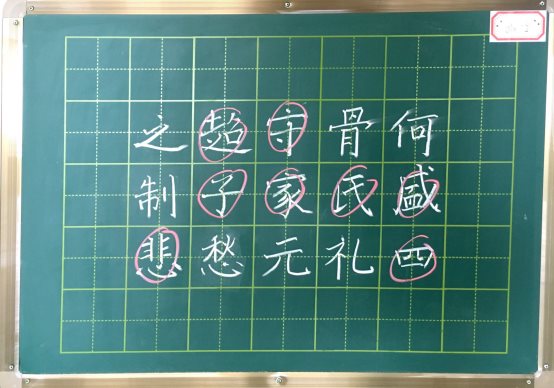 之趋守骨何
制子家氏盛
悲愁元礼四